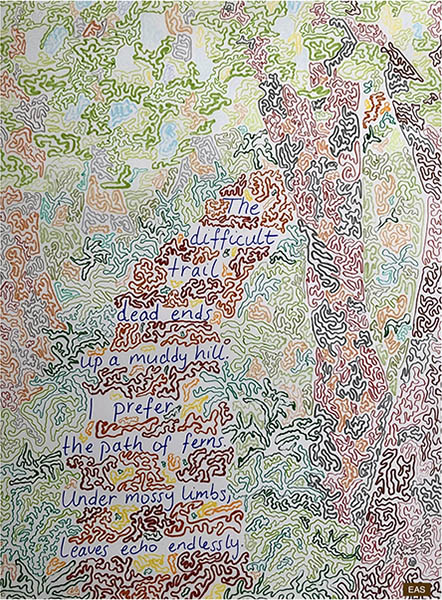 The
difficult
trail
dead ends
up a muddy hill.
I prefer
the path of ferns.
Under mossy limbs,
leaves echo endlessly.
EAS